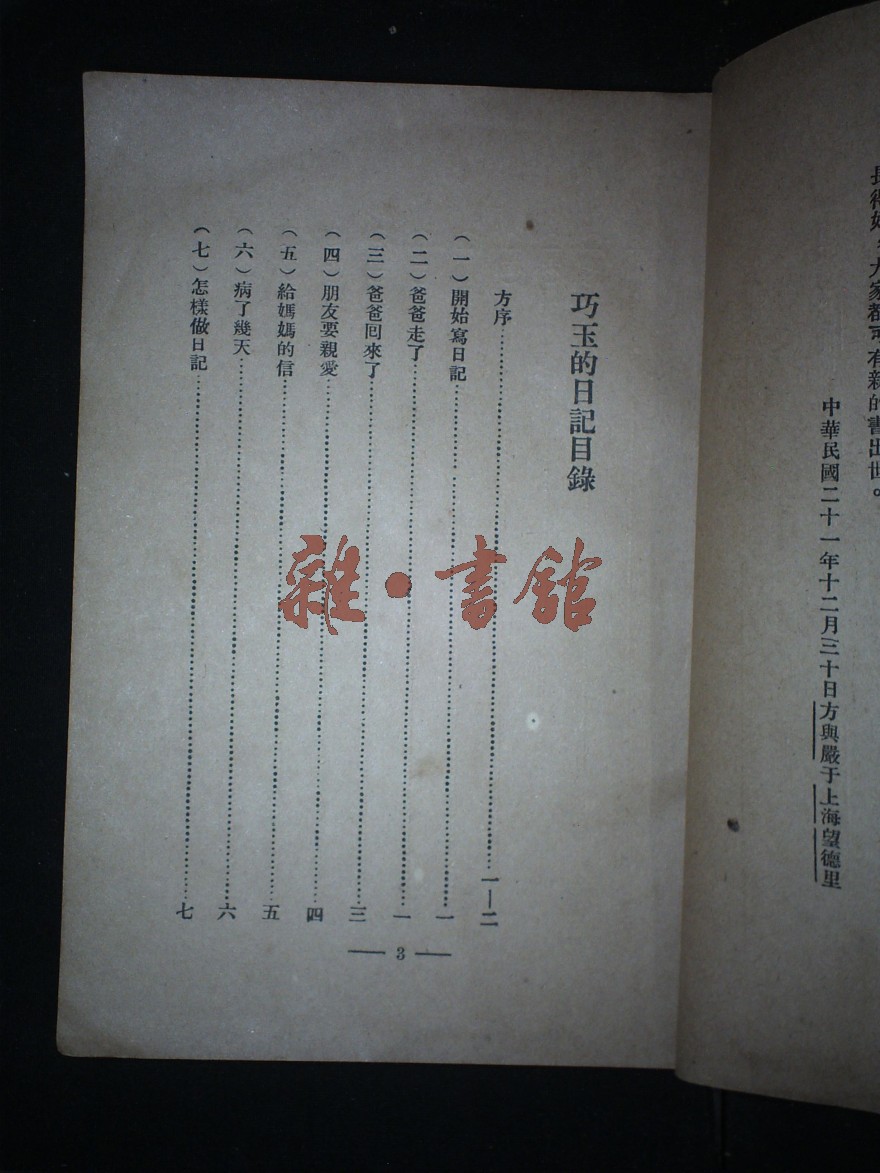 長得好，大家都可有新的書出世。
中華民國二十一年十二月三十日方與嚴于上海望德里
巧玉的日記目錄
方序……一—二
（一）開始寫日記……一
（二）爸爸走了……一
（三）爸爸回來了……三
（四）朋友要親愛……四
（五）給媽媽的信……五
（六）病了幾天……六
（七）怎樣做日記……七
— 3 —
雜·書館